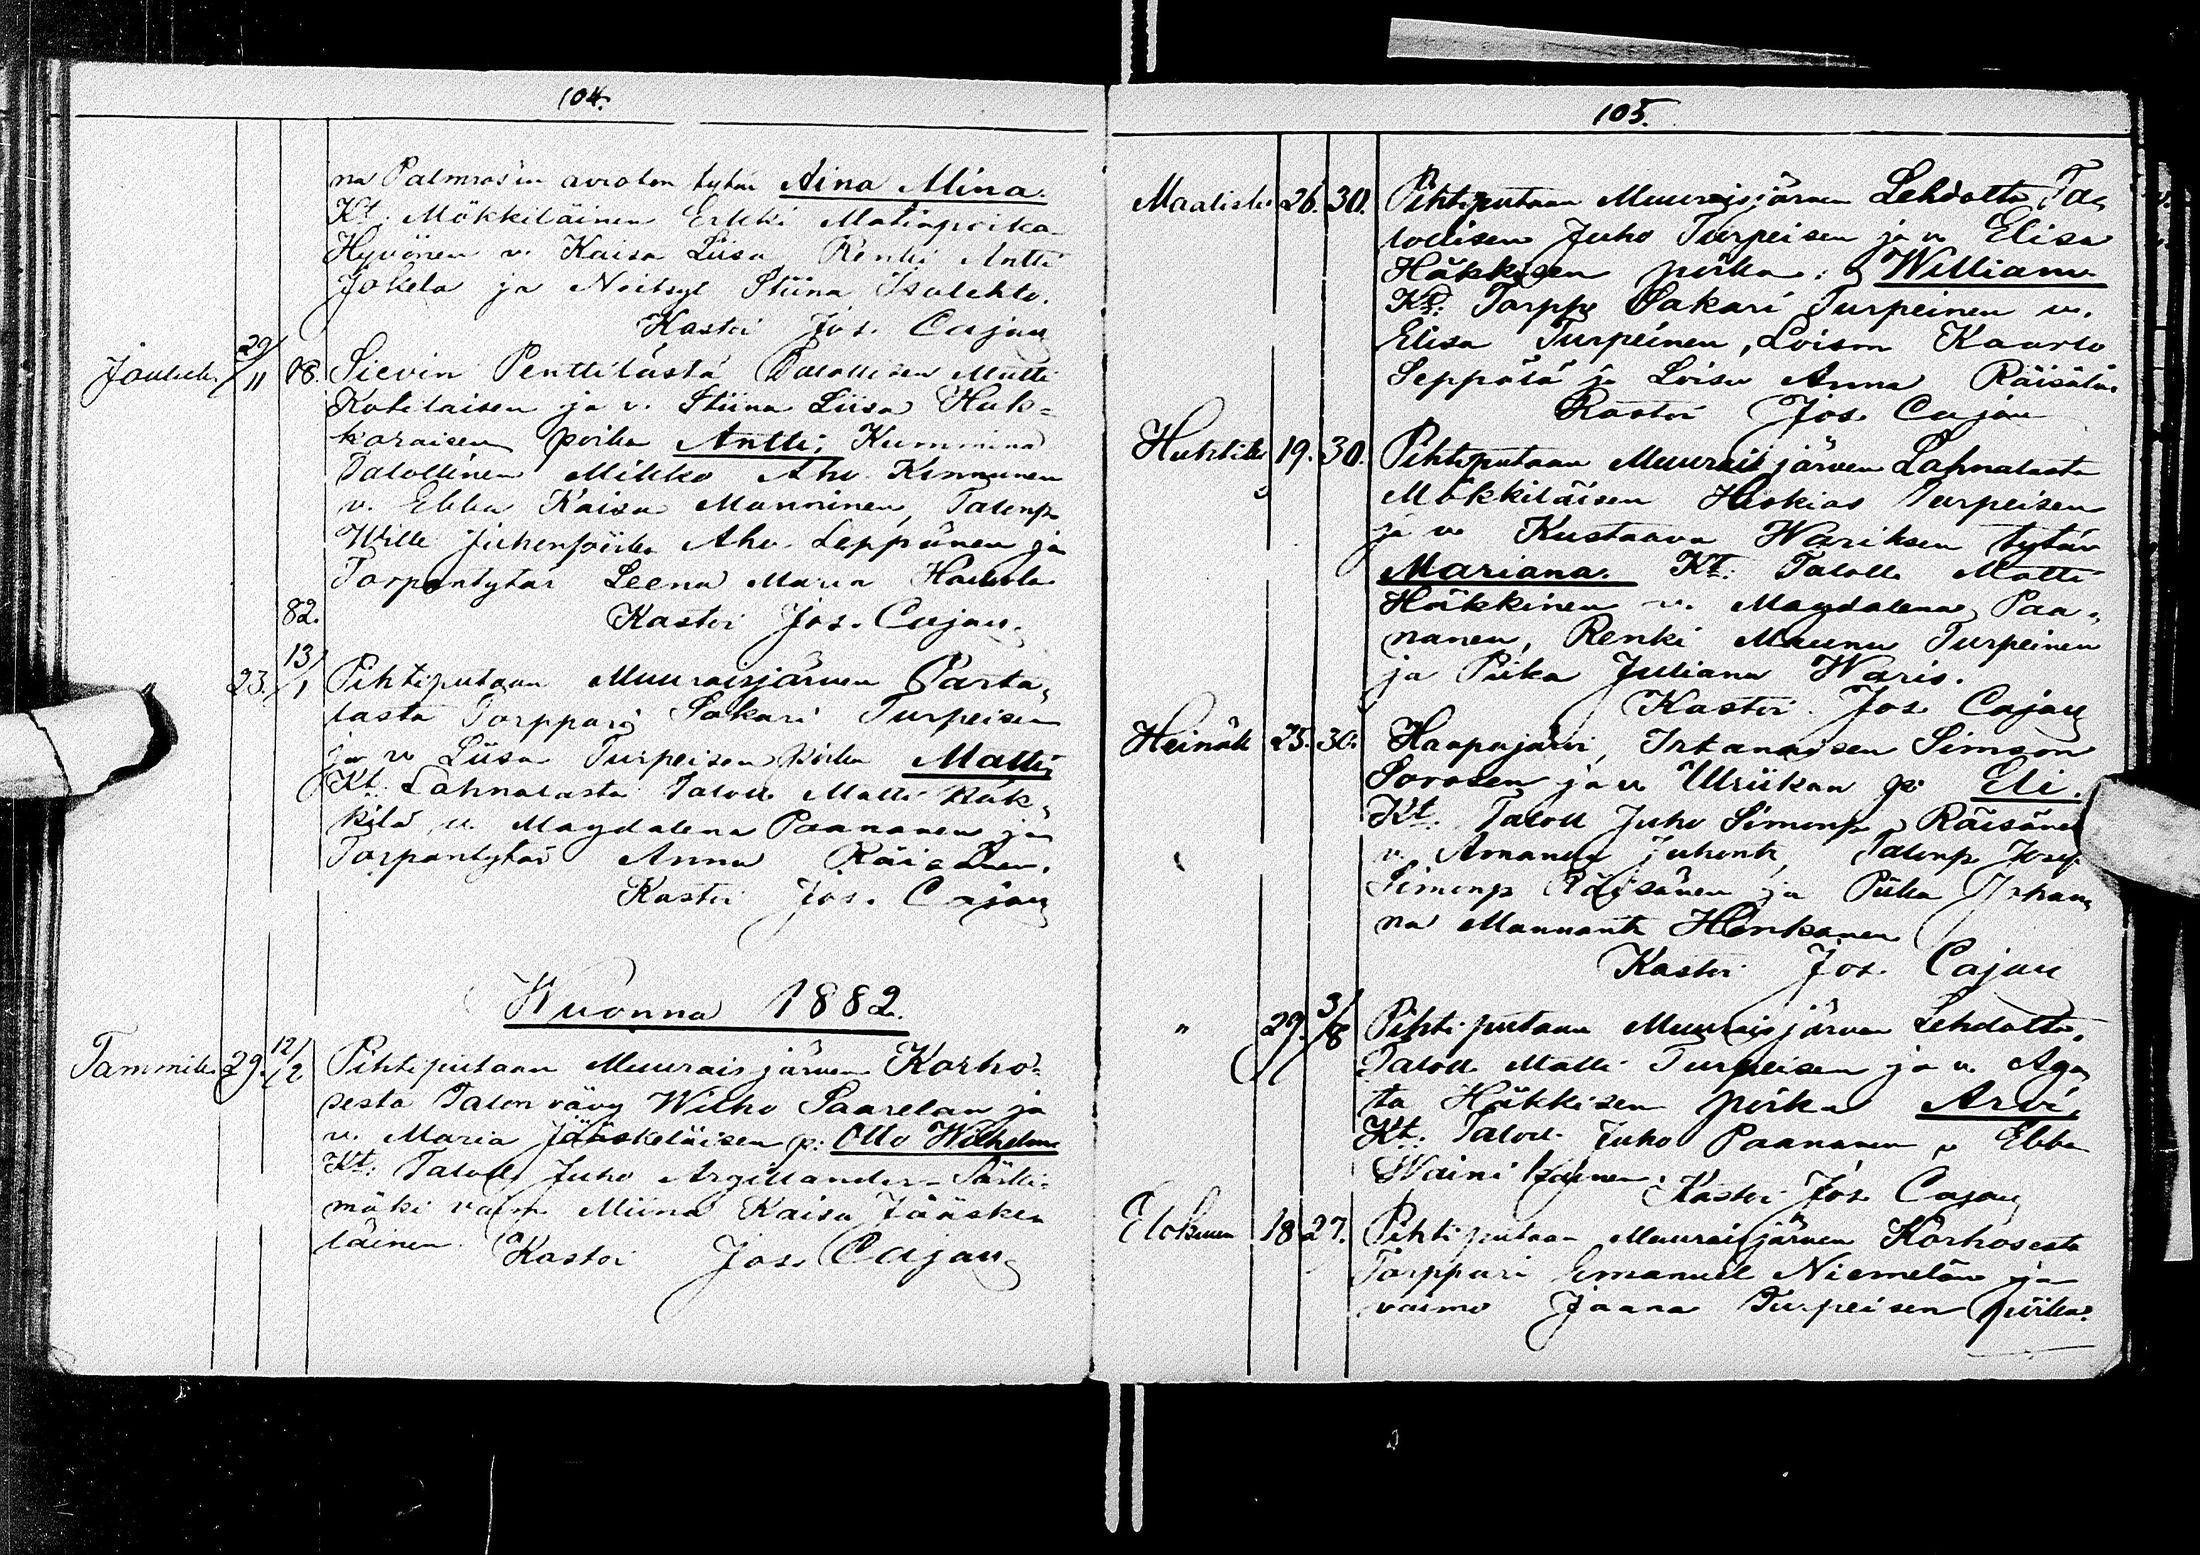 104.
na Palmrosin avioton tytär Aina Mina.
Kt. Mökkiläinen Erkki Matinpoika
Hyvönen v. Kaisa Liisa Renki Antti
Jokela ja Neitsyt Stiina Isolehto.
Kastoi Jos. Cajan
Jouluk. 29/11 18. Sievin Penttilästä Talollisen Matti
Kotilaisen ja v. Stiina Liisa Huk-
karaisen poika Antti; Kummina
Talollinen Mikko Aho Kinnunen
v. Ebba Kaisa Manninen, Talonp
Wille Juhonpoika Aho-Leppänen ja
Torpantytär Leena Maria
82. Kastoi Jos. Cajan.
23. 13/1 Pihtiputaan Muuraisjärven Parta-
lasta Torppari Sakari Turpeisen
ja v. Liisa Turpeisen poika Matti,
Kt. Lahnalasta Taloll. Matti Häk-
kilä v. Magdalena Paananen ja
Torpantytär Anna Räisänen.
Kastoi Jos. Cajan
Wuonna 1882.
Tammik. 29. 12/2 Pihtiputaan Muuraisjärven Korho-
sesta Talon vävy Wilho Saarelan ja
v. Maria Jääskeläisen p: Otto Wilhelm
Kt: Taloll Juho Argillander-Särki-
mäki vaim Miina Kaisa Jääske-
läinen. Kastoi Jos. Cajan
105.
Maalisk. 26. 30. Pihtiputaan Muuraisjärven Lehdolta Ta-
lollisen Juho Turpeisen ja v. Elisa
Häkkisen poika: William.
Kt: Torpp Sakari Turpeinen v.
Elisa Turpeinen, Loism Kaarlo
Seppälä ja Loisn Anna
Kastoi Jos. Cajan
Huhtik 19. 30. Pihtiputaan Muuraisjärven Lahnalasta
Mökkiläisen Hiskias Turpeisen
ja v. Kustaava Wariksen tytär
Mariana. Kt: Taloll. Matti
Häkkinen v. Magdalena Paa-
nanen, Renki Maunu Turpeinen
ja Piika Juliana Waris.
Kastoi Jos Cajan
Heinäk 25. 30. Haapajärvi, Itsenäisen Simson
Sorosen ja v Ulriikan p: Eli.
Kt. Taloll Juho Simonp Räisänen
v. Amanda Juhont, Talonp Josep
Simonp Räisänen ja Piika Johan-
na Maunont Honkanen
Kastoi Jos. Cajan
" 29. 3/8 Pihtiputaan Muuraisjärven Lehdolta,
Taloll. Matti Turpeisen ja v. Aga-
ta Häkkisen poika Arvi,
Kt. Taloll. Juho Paananen v Ebba
Wainikainen. Kastoi Jos. Cajan
Elokuun 18 27. Pihtiputaan Muuraisjärven Korhosesta
Torppari Emanuel Niemelän ja
vaimo Jaana Turpeisen poika.